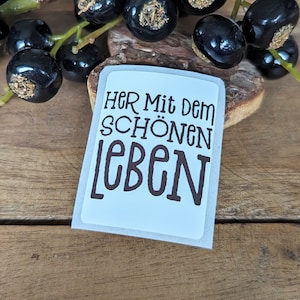 HER Mit DEM
SCHÖNEN
LEBEN